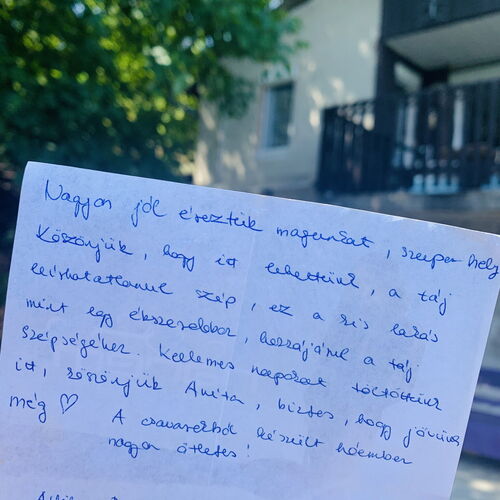 Nagyon jól éreztük magunkat, szuper hely
Köszönjük, hogy itt lehettünk, a táj
leírhatatlanul szép, ez a kis lakás
mint egy ékszerdoboz, hozzájárul a táj
szépségéhez. Kellemes napokat töltöttünk
itt, köszönjük Anita, biztos, hogy jövünk
még ♡ A csavarokból készült hóember
nagyon ötletes!